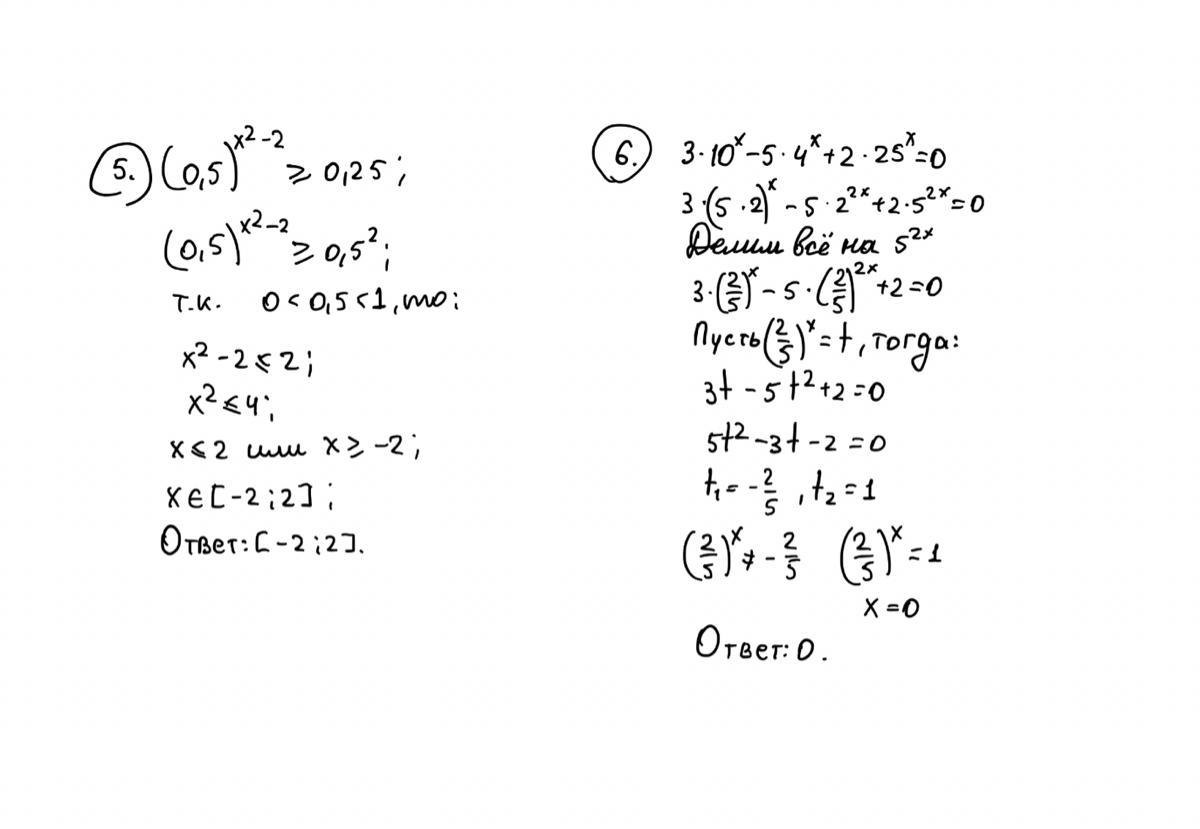 5. (0,5)^{x²-2} ⩾ 0,25;
(0,5)^{x²-2} ⩾ 0,5²;
т.к. 0 < 0,5 < 1, то:
x² - 2 ⩽ 2;
x² ⩽ 4;
x ⩽ 2 или x ⩾ -2;
x ∈ [-2; 2];
Ответ: [-2; 2].
6. 3·10^x - 5·4^x + 2·25^x = 0
3·(5·2)^x - 5·2^{2x} + 2·5^{2x} = 0
Делим всё на 5^{2x}
3·(2/5)^x - 5·(2/5)^{2x} + 2 = 0
Пусть (2/5)^x = t, тогда:
3t - 5t² + 2 = 0
5t² - 3t - 2 = 0
t₁ = -2/5, t₂ = 1
(2/5)^x ≠ -2/5 (2/5)^x = 1
x = 0
Ответ: 0.